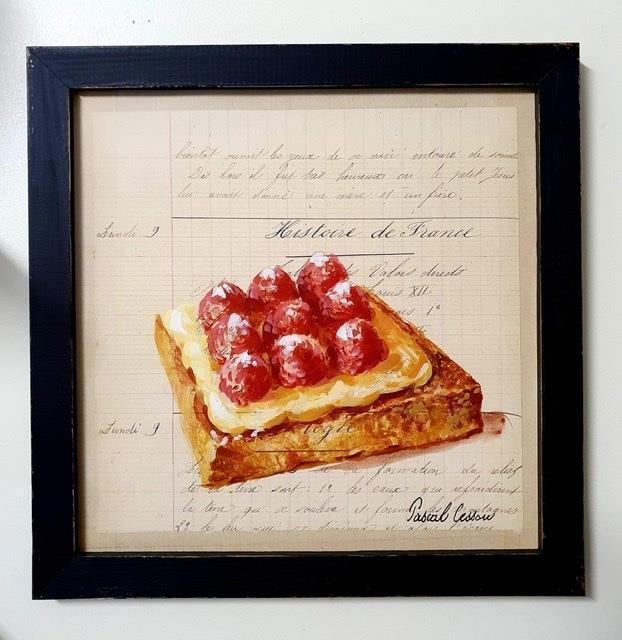 bientôt ouvrit les yeux de se voir entouré de soins
Dès lors il fut très heureux car le petit Jésus
lui avait donné une mère et un frère.
Lundi 9
Histoire de France
Valois directs
Louis XII
1er
Lundi 9
logie
de la formation du relief
de la terre sont: 1º les eaux qui refroidirent
la terre qui se souleva et forma les montagnes
2º le feu
Pascal Cessou